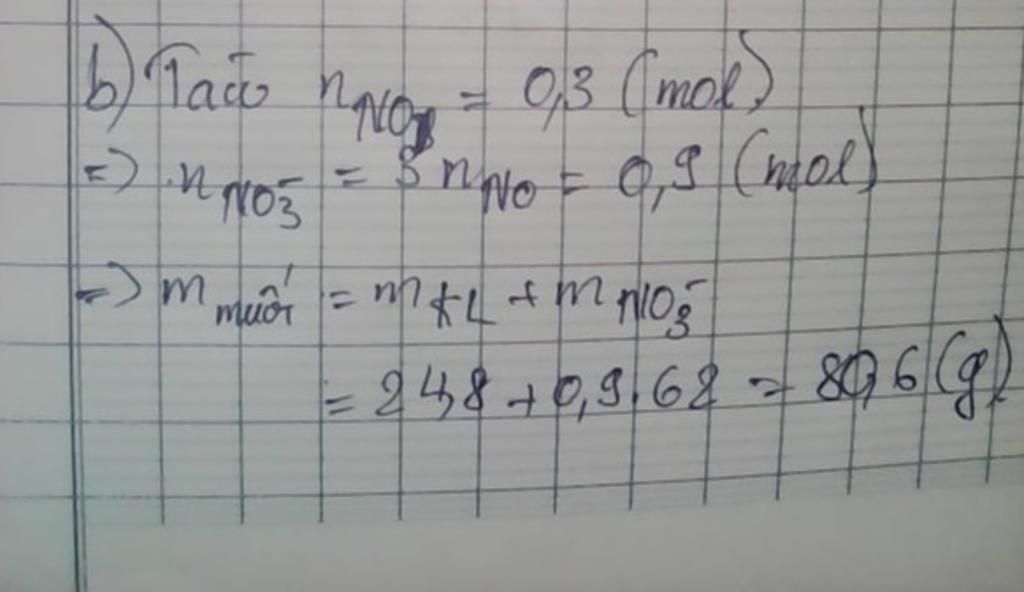 b) Ta có n_NO = 0,3 (mol)
=> n_NO3^- = 3 n_NO = 0,9 (mol)
=> m_muối = m_KL + m_NO3^-
= 24,8 + 0,9.62 = 80,6 (g)